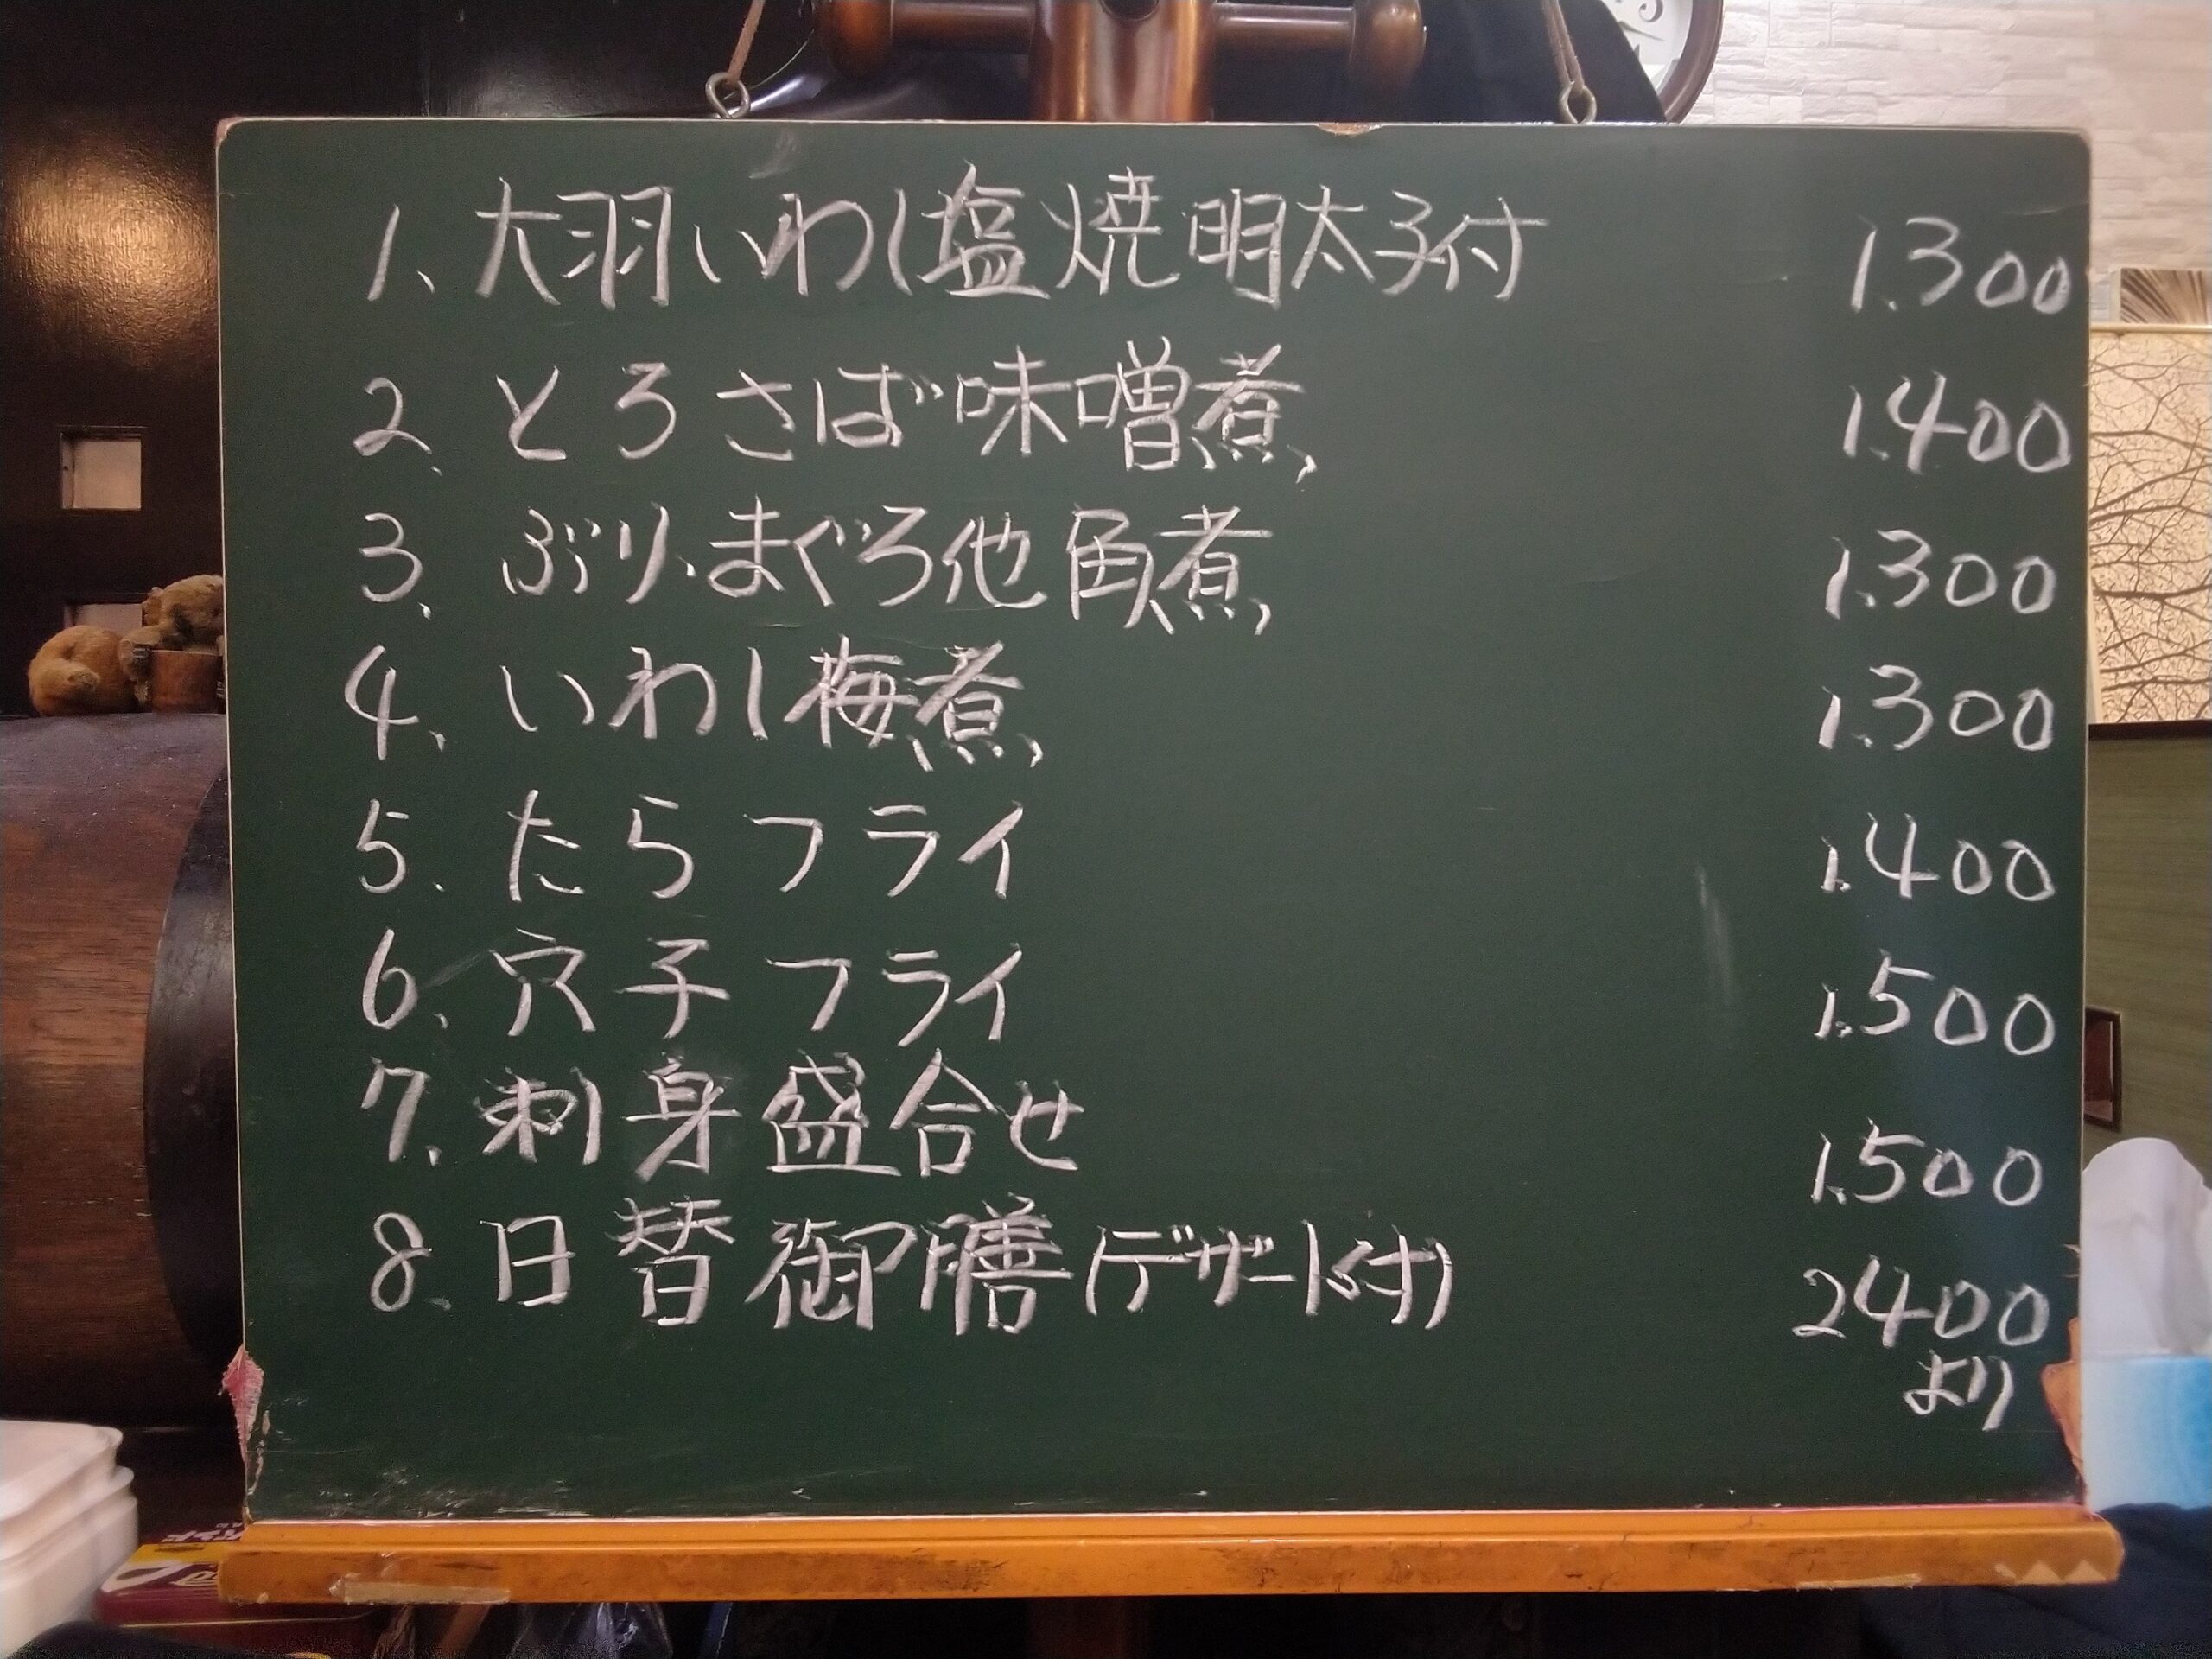 1、大羽いわし塩焼明太子付 1.300
2、とろさば味噌煮 1.400
3、ぶり、まぐろ他角煮 1.300
4、いわし梅煮 1.300
5、たらフライ 1.400
6、穴子フライ 1.500
7、刺身盛合せ 1.500
8、日替御膳(デザート付) 2400
より